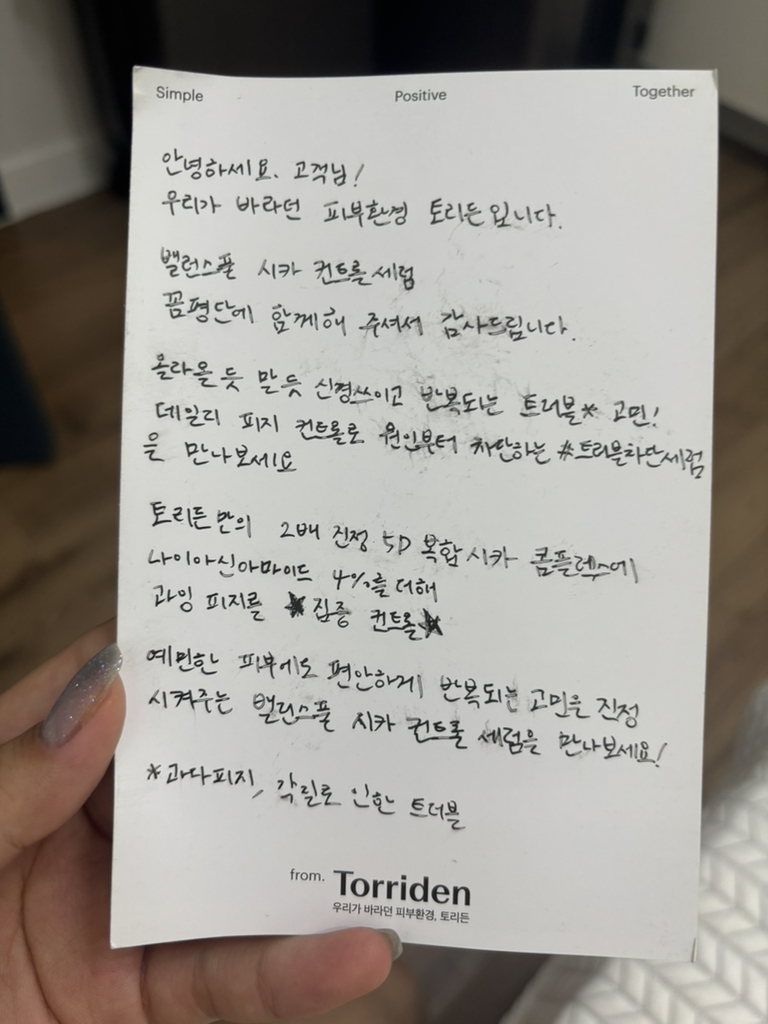 Simple Positive Together
안녕하세요. 고객님!
우리가 바라던 피부환경 토리든입니다.
밸런스풀 시카 컨트롤 세럼
꼼평단에 함께해 주셔서 감사드립니다.
올라올 듯 말 듯 신경쓰이고 반복되는 트러블* 고민!
데일리 피지 컨트롤로 원인부터 차단하는 #트러블차단세럼
을 만나보세요
토리든만의 2배 진정 5D 복합 시카 콤플렉스에
나이아신아마이드 4%를 더해
과잉 피지를 ★집중 컨트롤★
예민한 피부에도 편안하게 반복되는 고민을 진정
시켜주는 밸런스풀 시카 컨트롤 세럼을 만나보세요!
*과다피지, 각질로 인한 트러블
from. Torriden
우리가 바라던 피부환경, 토리든